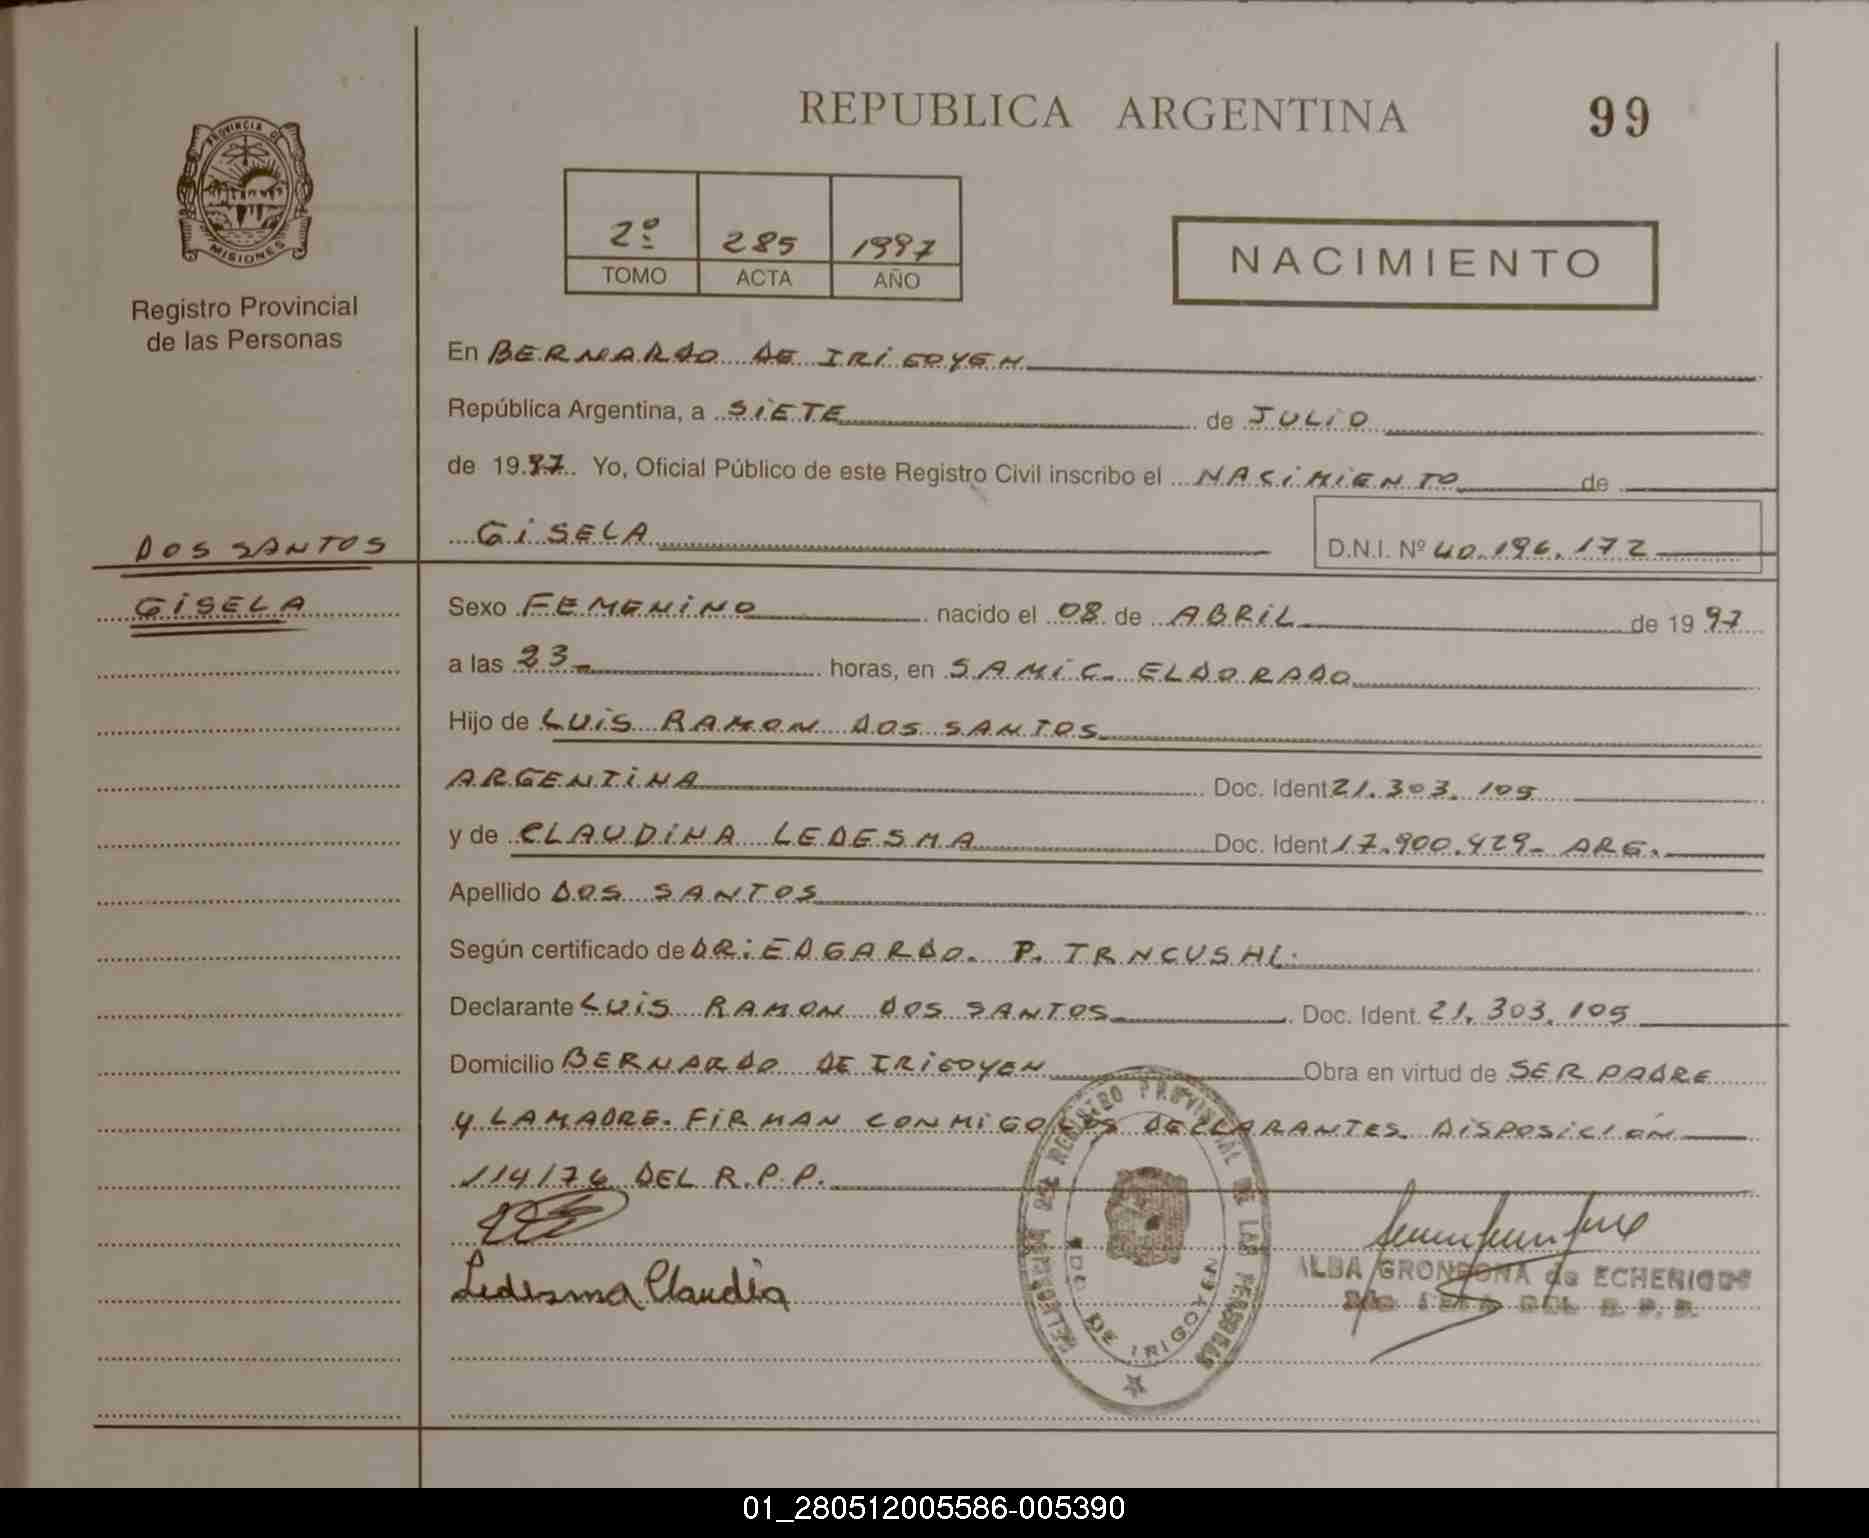 REPUBLICA ARGENTINA
99
PROVINCIA D
MISIONES
Registro Provincial
de las Personas
2º 285 1997
TOMO ACTA AÑO
NACIMIENTO
En BERNARDO DE IRIGOYEN
República Argentina, a SIETE de JULIO
de 1997. Yo, Oficial Público de este Registro Civil inscribo el NACIMIENTO de
DOS SANTOS
GISELA D.N.I. Nº 40.196.172
GISELA
Sexo FEMENINO nacido el 08 de ABRIL de 1997
a las 23 horas, en SAMIC. ELDORADO
Hijo de LUIS RAMON DOS SANTOS
ARGENTINA Doc. Ident 21.303.105
y de CLAUDINA LEDESMA Doc. Ident 17.900.429- ARG.
Apellido DOS SANTOS
Según certificado de DR: EDGARDO. P.
Declarante LUIS RAMON DOS SANTOS Doc. Ident. 21.303.105
Domicilio BERNARDO DE IRIGOYEN Obra en virtud de SER PADRE
Y LA MADRE. FIRMAN CONMIGO LOS DECLARANTES. DISPOSICION
114/76 DEL R.P.P.
Ledesma Claudia
REGISTRO PROVINCIAL DE LAS PERSONAS
DE IRIGOYEN
ALBA GRONDONA de ECHERIQUE
01_280512005586-005390